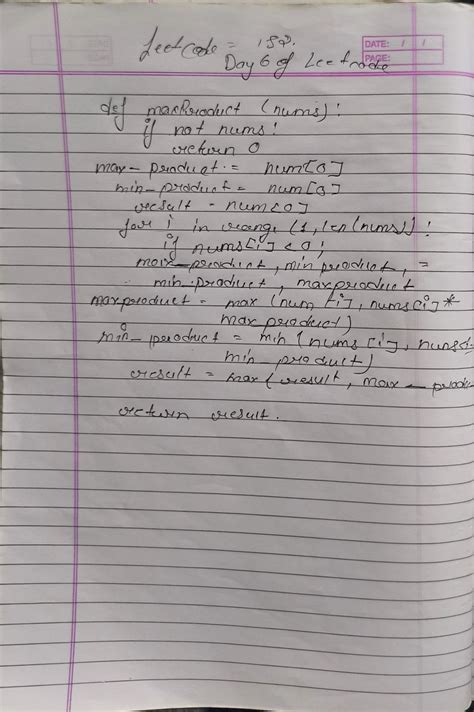 Leetcode = 152.
DATE: / /
PAGE:
Day 6 of Leetcode
def maxProduct (nums):
if not nums:
return 0
max_product = num[0]
min_product = num[0]
result = num[0]
for i in range (1, len(nums)):
if nums[i] < 0;
max_product, min product, =
min product, max product
maxproduct = max (num [i], nums[i] *
max product)
min_product = min (nums [i], nums[i
min_product)
result = max( result, max_produ
return result.